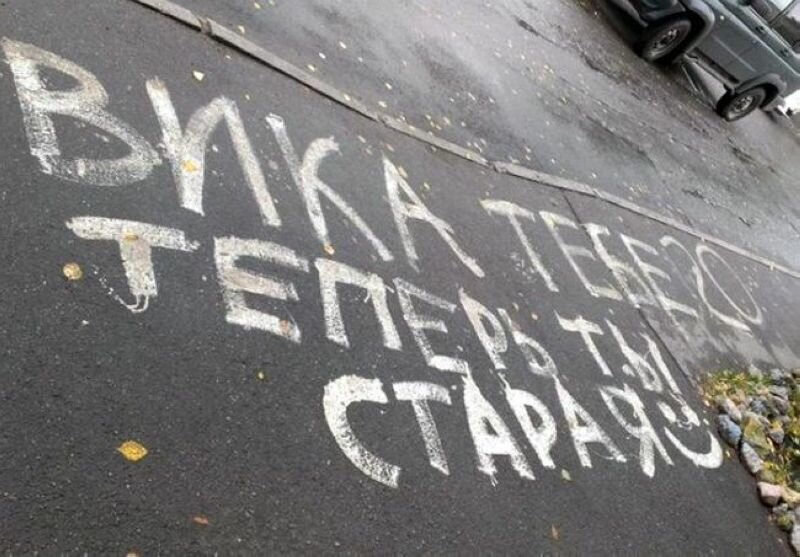 ВИКА ТЕБЕ 20
ТЕПЕРЬ ТЫ
СТАРАЯ :)